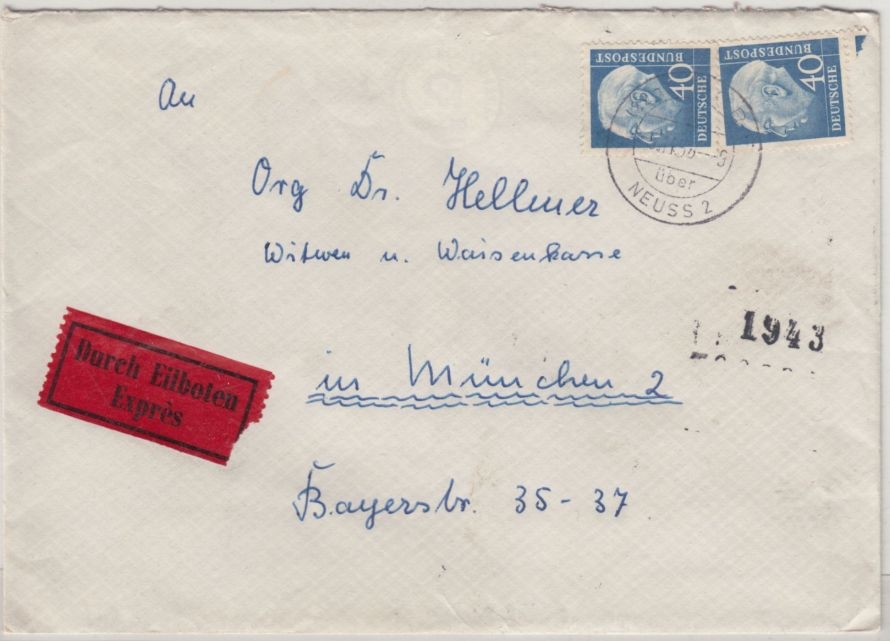 An
Org Dr. Hellmer
Witwen u. Waisenkasse
in München 2
Bayerstr. 35-37
Durch Eilboten
Exprès
DEUTSCHE
BUNDESPOST
40
DEUTSCHE
BUNDESPOST
40
über
NEUSS 2
1943